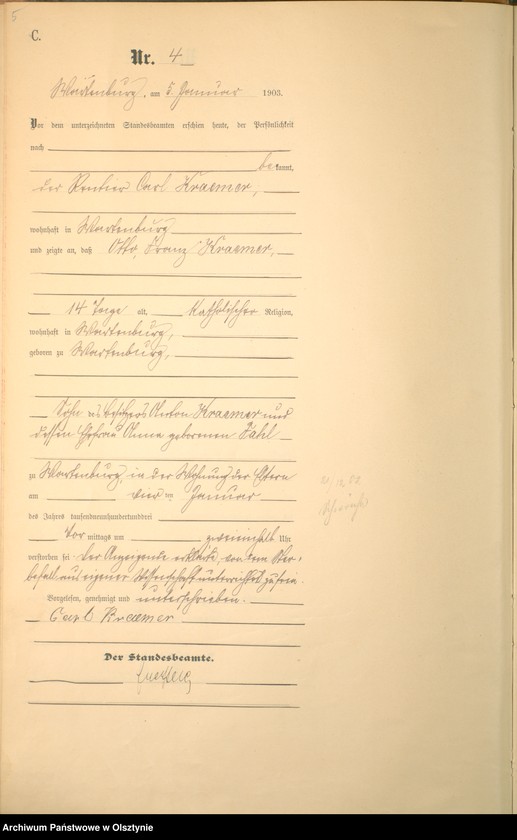 5
C.
Nr. 4
Wartenburg, am 5. Januar 1903.
Vor dem unterzeichneten Standesbeamten erschien heute, der Persönlichkeit
nach
bekannt,
der Rentier Carl Kraemer,
wohnhaft in Wartenburg
und zeigte an, daß Otto, Franz Kraemer,
14 Tage alt, katholischer Religion,
wohnhaft in Wartenburg,
geboren zu Wartenburg,
Sohn des Besitzers Anton Kraemer und
dessen Ehefrau Anna geborenen
zu Wartenburg, in der Wohnung der Eltern
am vier ten Januar
des Jahres tausendneunhundertunddrei
Vor mittags um Uhr
verstorben sei. Der Anzeigende erklärte, von dem Ster-
befall aus eigener Wissenschaft unterrichtet zu sein.
Vorgelesen, genehmigt und unterschrieben.
Carl Kraemer
Der Standesbeamte.
Archiwum Państwowe w Olsztynie